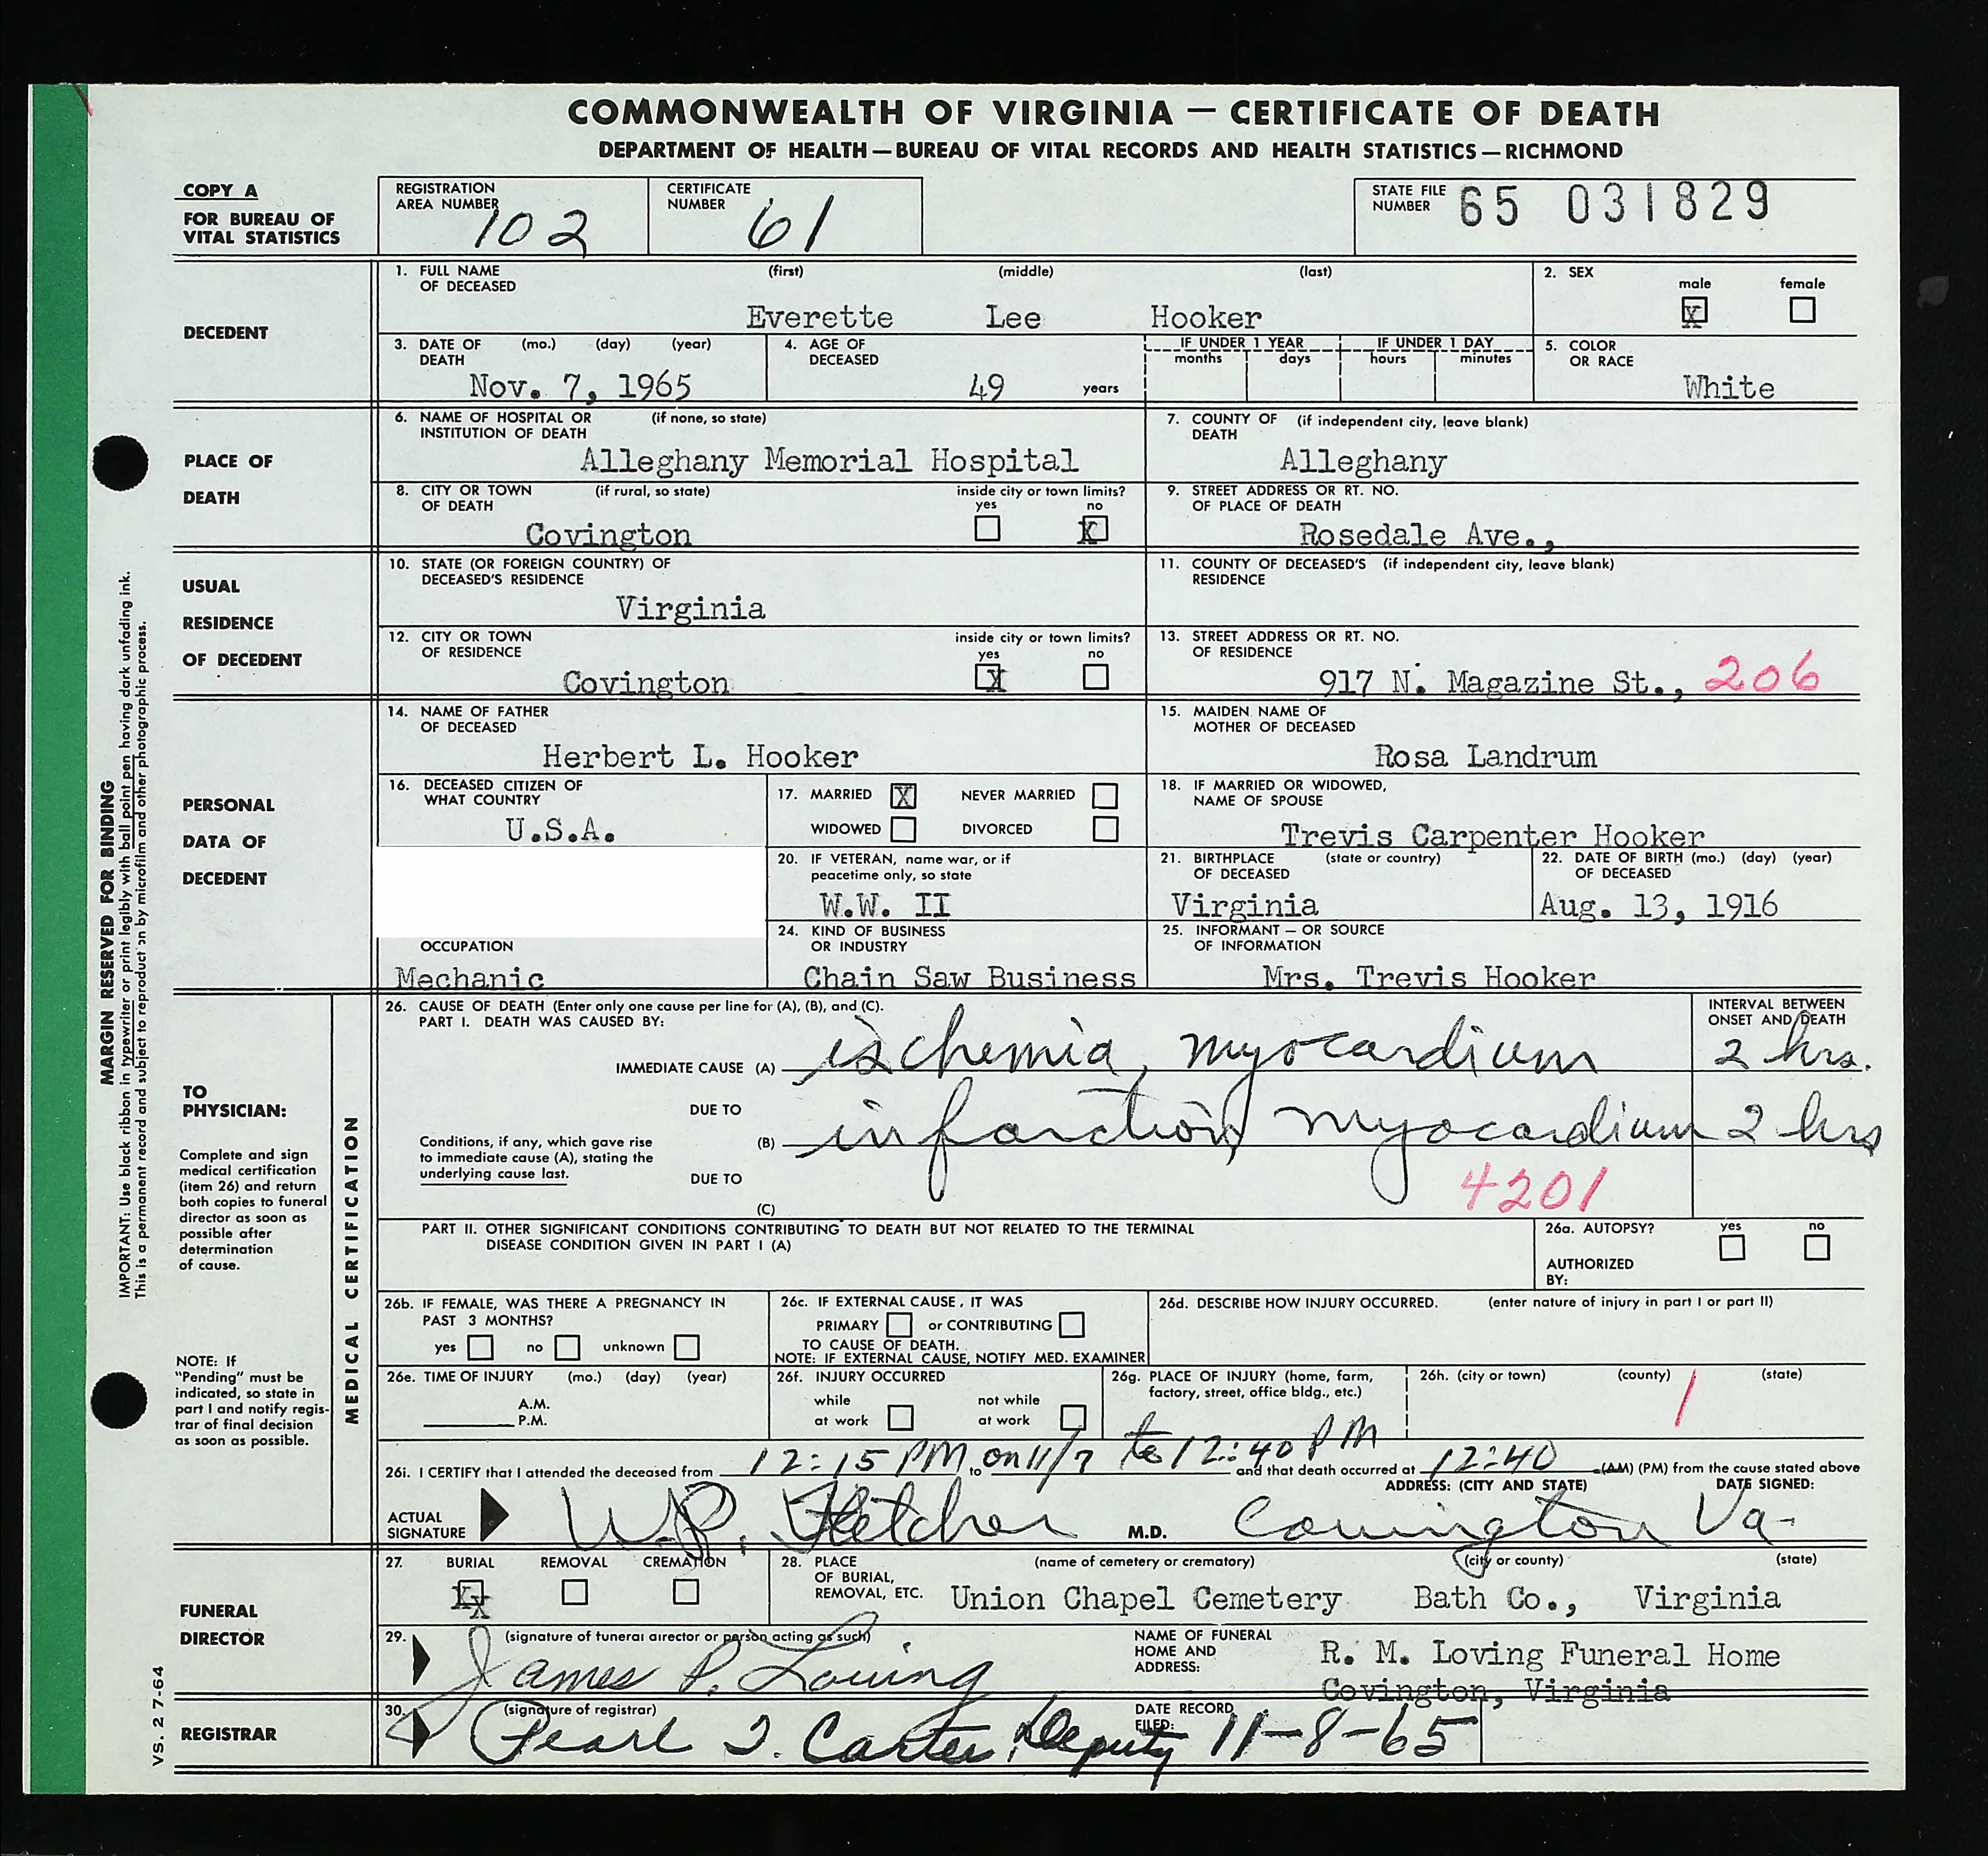 COMMONWEALTH OF VIRGINIA — CERTIFICATE OF DEATH
DEPARTMENT OF HEALTH — BUREAU OF VITAL RECORDS AND HEALTH STATISTICS — RICHMOND
COPY A
FOR BUREAU OF
VITAL STATISTICS
REGISTRATION
AREA NUMBER
102
CERTIFICATE
NUMBER
61
STATE FILE
NUMBER
65 031829
DECEDENT
1. FULL NAME
OF DECEASED
(first) (middle) (last)
Everette Lee Hooker
2. SEX
male female
X
3. DATE OF (mo.) (day) (year)
DEATH
Nov. 7, 1965
4. AGE OF
DECEASED
49 years
IF UNDER 1 YEAR
months days
IF UNDER 1 DAY
hours minutes
5. COLOR
OR RACE
White
PLACE OF
DEATH
6. NAME OF HOSPITAL OR (if none, so state)
INSTITUTION OF DEATH
Alleghany Memorial Hospital
7. COUNTY OF (if independent city, leave blank)
DEATH
Alleghany
8. CITY OR TOWN (if rural, so state)
OF DEATH
Covington
inside city or town limits?
yes no
X
9. STREET ADDRESS OR RT. NO.
OF PLACE OF DEATH
Rosedale Ave.,
USUAL
RESIDENCE
OF DECEDENT
10. STATE (OR FOREIGN COUNTRY) OF
DECEASED'S RESIDENCE
Virginia
11. COUNTY OF DECEASED'S (if independent city, leave blank)
RESIDENCE
12. CITY OR TOWN
OF RESIDENCE
Covington
inside city or town limits?
yes no
X
13. STREET ADDRESS OR RT. NO.
OF RESIDENCE
917 N. Magazine St., 206
PERSONAL
DATA OF
DECEDENT
14. NAME OF FATHER
OF DECEASED
Herbert L. Hooker
15. MAIDEN NAME OF
MOTHER OF DECEASED
Rosa Landrum
16. DECEASED CITIZEN OF
WHAT COUNTRY
U.S.A.
17. MARRIED X NEVER MARRIED
WIDOWED DIVORCED
18. IF MARRIED OR WIDOWED,
NAME OF SPOUSE
Trevis Carpenter Hooker
20. IF VETERAN, name war, or if
peacetime only, so state
W.W. II
21. BIRTHPLACE (state or country)
OF DECEASED
Virginia
22. DATE OF BIRTH (mo.) (day) (year)
OF DECEASED
Aug. 13, 1916
OCCUPATION
Mechanic
24. KIND OF BUSINESS
OR INDUSTRY
Chain Saw Business
25. INFORMANT — OR SOURCE
OF INFORMATION
Mrs. Trevis Hooker
MARGIN RESERVED FOR BINDING
IMPORTANT: Use black ribbon in typewriter or print legibly with ball point pen having dark unfading ink.
This is a permanent record and subject to reproduction by microfilm and other photographic process.
TO
PHYSICIAN:
Complete and sign
medical certification
(item 26) and return
both copies to funeral
director as soon as
possible after
determination
of cause.
NOTE: If
"Pending" must be
indicated, so state in
part I and notify regis-
trar of final decision
as soon as possible.
MEDICAL CERTIFICATION
26. CAUSE OF DEATH (Enter only one cause per line for (A), (B), and (C).
PART I. DEATH WAS CAUSED BY:
INTERVAL BETWEEN
ONSET AND DEATH
IMMEDIATE CAUSE (A) ischemia, myocardium 2 hrs.
DUE TO
(B) infarction, myocardium 2 hrs
Conditions, if any, which gave rise
to immediate cause (A), stating the
underlying cause last.
DUE TO
(C)
4201
PART II. OTHER SIGNIFICANT CONDITIONS CONTRIBUTING TO DEATH BUT NOT RELATED TO THE TERMINAL
DISEASE CONDITION GIVEN IN PART I (A)
26a. AUTOPSY? yes no
AUTHORIZED
BY:
26b. IF FEMALE, WAS THERE A PREGNANCY IN
PAST 3 MONTHS?
yes no unknown
26c. IF EXTERNAL CAUSE, IT WAS
PRIMARY or CONTRIBUTING
TO CAUSE OF DEATH.
NOTE: IF EXTERNAL CAUSE, NOTIFY MED. EXAMINER
26d. DESCRIBE HOW INJURY OCCURRED. (enter nature of injury in part I or part II)
26e. TIME OF INJURY (mo.) (day) (year)
A.M.
P.M.
26f. INJURY OCCURRED
while not while
at work at work
26g. PLACE OF INJURY (home, farm,
factory, street, office bldg., etc.)
26h. (city or town) (county) (state)
1
26i. I CERTIFY that I attended the deceased from 12:15 PM on 11/7 to to 12:40 PM and that death occurred at 12:40 (AM) (PM) from the cause stated above
ADDRESS: (CITY AND STATE) DATE SIGNED:
ACTUAL
SIGNATURE
W.P. Fletcher M.D. Covington Va-
FUNERAL
DIRECTOR
27. BURIAL REMOVAL CREMATION
XX
28. PLACE
OF BURIAL,
REMOVAL, ETC.
(name of cemetery or crematory) (city or county) (state)
Union Chapel Cemetery Bath Co., Virginia
29. (signature of funeral director or person acting as such)
James P. Loving
NAME OF FUNERAL
HOME AND
ADDRESS:
R. M. Loving Funeral Home
Covington, Virginia
REGISTRAR
30. (signature of registrar)
Pearl T. Carter, Deputy
DATE RECORD
FILED:
11-8-65
VS. 2 7-64